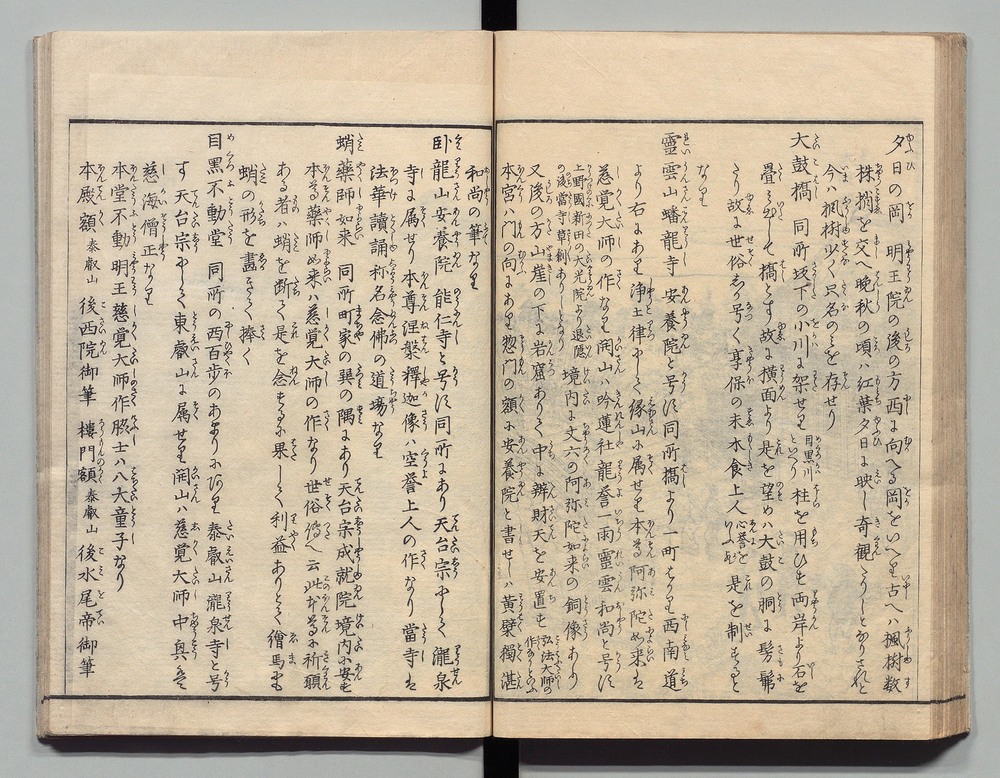 夕日の岡 明王院の後の方西に向へる岡をいへり古へハ楓樹数
株梢を交へ晩秋の頃ハ紅葉夕日に映し奇観たりしとなりされと
今ハ楓樹少く只名のミを存せり
大鼓橋 同所坂下の小川に架せり 目黒川といへり 柱を用ひす両岸より石を
畳出して橋とす故に横面より是を望めハ大鼓の胴に髣髴
たり故に世俗しか号く享保の末木食上人 心誉を 是を制すると
なり
靈雲山蟠龍寺 安養院と号す同所橋より一町はかり西南道
より右にあり 浄土律にして縁山に属せり本尊阿弥陀如来は
慈覚大師の作なり開山ハ吟蓮社龍誉一雨靈雲和尚と号す
上野國新田の大光院より退隠の後當寺草創ありしとなり 境内に丈六の阿弥陀如来の銅像あり
又後の方山崖の下に岩窟ありて中に辨財天を安置す 弘法大師の作なりといふ
本宮ハ門の向にあり惣門の額に安養院と書せしハ黄檗獨湛
和尚の筆なり
卧龍山安養院 能仁寺と号す同所にあり天台宗にして瀧泉
寺に属せり 本尊涅槃釋迦像ハ空誉上人の作なり 當寺は
法華讀誦称名念佛の道場なり
蛸藥師如来 同所町家の巽の隅にあり天台宗成就院境内に安す
本尊藥師如来ハ慈覚大師の作なり 世俗傳へ云此本尊に祈願
ある者ハ蛸を断て是を念するに果して利益ありとて 繪馬にも
蛸の形を畵きて捧く
目黒不動堂 同所の西百歩のあまりにあり 泰叡山瀧泉寺と号
す天台宗にして東叡山に属せり開山ハ慈覚大師中興ハ
慈海僧正なり
本堂不動明王慈覚大師作脇士ハ八大童子なり
本殿額 泰叡山 後西院御筆 樓門額 泰叡山 後水尾帝御筆